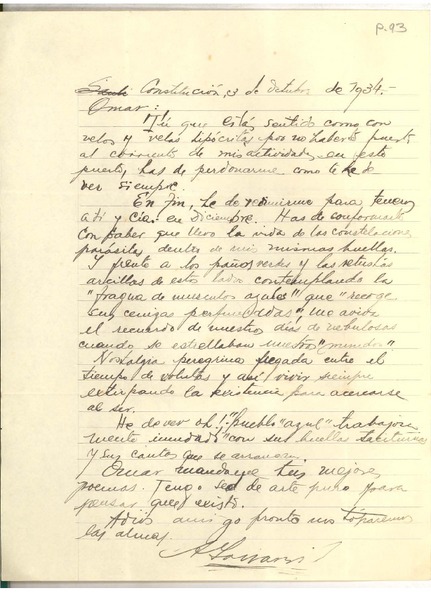 P.93
Constitución, 3 de Octubre de 1934.-
Omar:
Tú que estás sentido como con
velos y velas hipócritas por no haberte puesto
al corriente de mis actividades en este
puerto, has de perdonarme como te he de
ver siempre.
En fin, he de para tenerte
a ti y Cía. en Diciembre. Has de conformarte
con saber que llevo la vida de las constelaciones
parásitas dentro de mis mismas huellas.
Y frente a los paños verdes y las
arcillas de esta contemplando la
"fragua de musculos azules" que "recoge
sus cenizas perfumadas" me aviva
el recuerdo de nuestros días de nebulosas
cuando se estrellaban nuestros "mundos"
Nostalgia peregrina pegada entre el
tiempo de y así vivir siempre
extirpando la existencia para acercarse
al ser.
He de ver oh! "pueblo azul" trabajosa
mente inundado "con sus huellas
y sus cantos que se arrancan.
Omar mandame tus mejores
poemas. Tengo sed de arte puro para
pensar que existo.
Adiós amigo pronto nos toparemos
las almas.